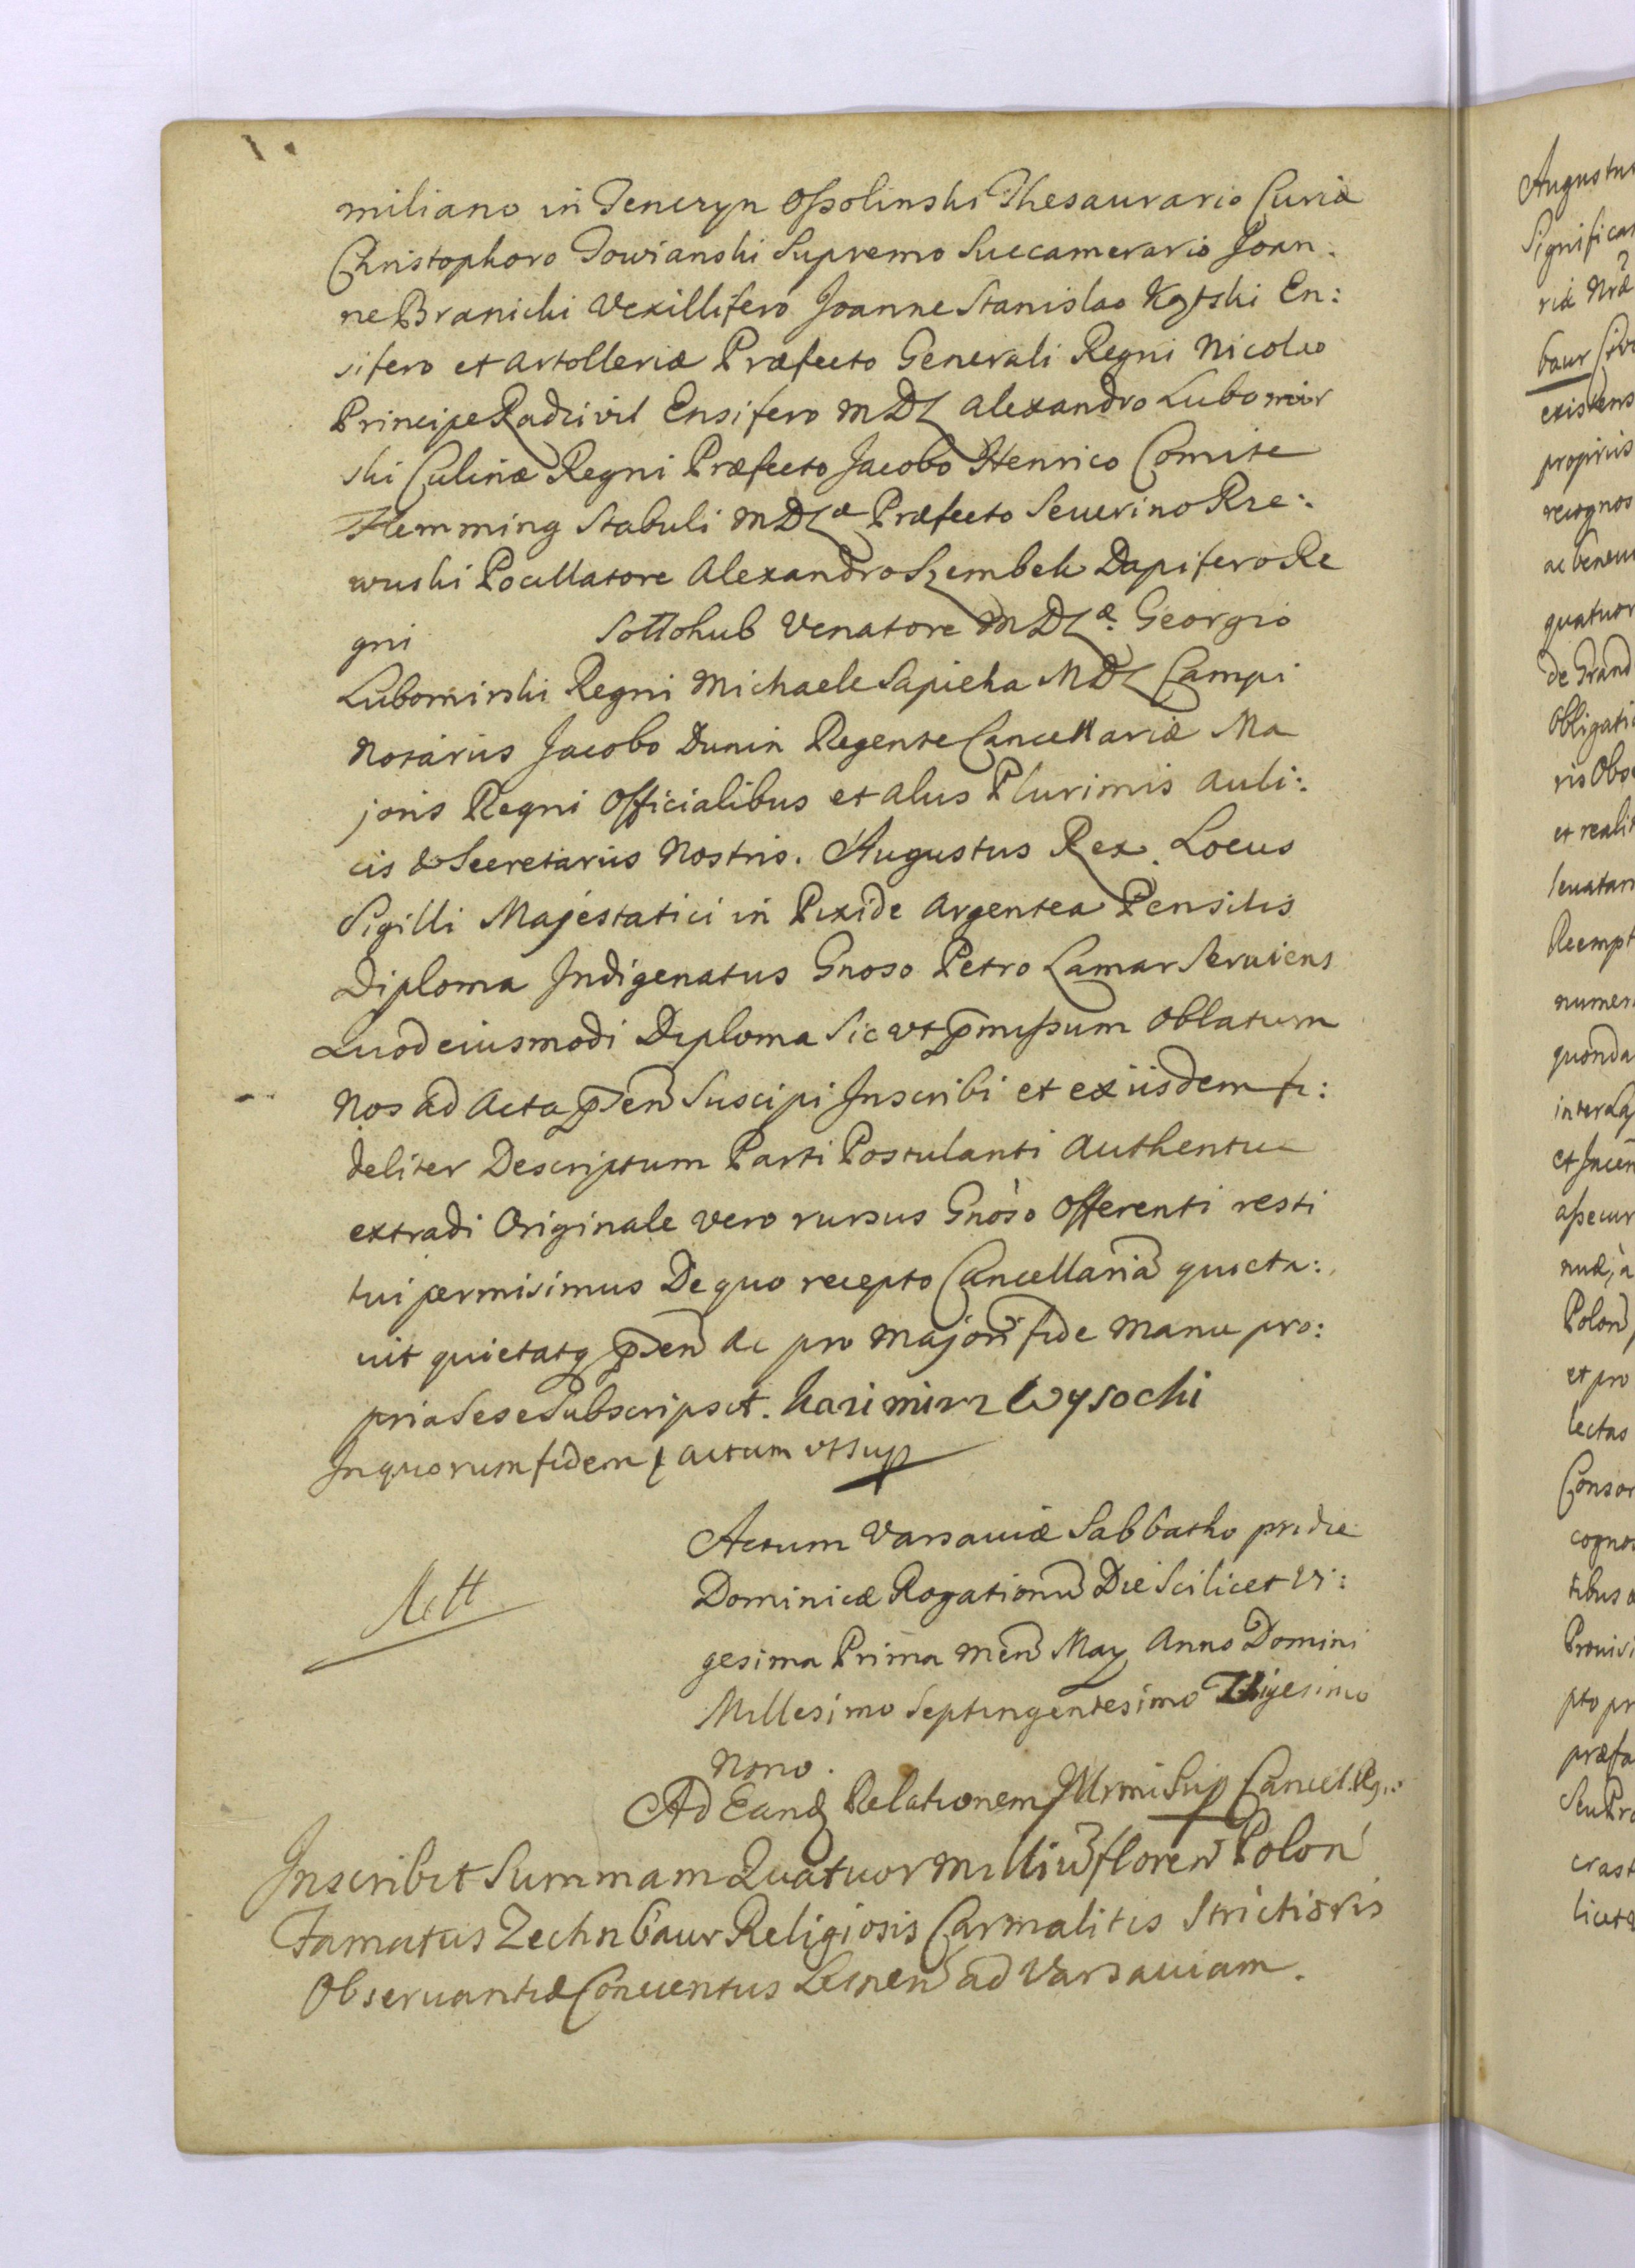 miliano in Tenczyn Ossolinski Thesaurario Curiæ
Christophoro Towianski Supremo Succamerario Joan:
ne Branicki Vexillifero Joanne Stanislao Kątski En:
sifero et Artolleriæ Præfecto Generali Regni Nicolao
Principe Radzivil Ensifero MDL Alexandro Lubomir
ski Culinæ Regni Præfecto Jacobo Henrico Comite
Flemming Stabuli MDLæ Præfecto Severino Rze:
wuski Pocillatore Alexandro Szembek Dapifero Re
gni Sottohub Venatore MDLæ. Georgio
Lubomirski Regni Michaele Sapieha MDL Campi
Notariis Jacobo Dunin Regente Cancellariæ Ma
joris Regni Officialibus et aliis Plurimis Auli:
cis & Secretariis Nostris. Augustus Rex. Locus
Sigilli Majestatici in Pixide Argentea Pensilis
Diploma Indigenatus Gnoso Petro Lamar Serviens
Quod eiusmodi Diploma Sic ut p̃missum Oblatum
Nos ad Acta p̃sen Suscipi Inscribi et ex iisdem fi:
deliter Descriptum Parti Postulanti Authentice
extradi Originale vero rursus Gnoso Offerenti resti
tui permisimus De quo recepto Cancellariã quieta:
vit quietatq p̃sen ac pro majori fide manu pro:
pria Sese Subscripsit. Kazimirz Wysocki
In quorum fidem & actum ut sup
Actum Varsaviæ Sabbatho pridie
Dominicæ Rogationũ Die Scilicet Vi:
gesima Prima Men̄ May Anno Domini
Millesimo Septingentesimo Trigesimo
Nono.
Ad Eandẽ Relationem Illrmi Sup Cancel. Rg.:
Inscribit Summam Quatuor milliũ floren̄ Polon̄
Famatus Zechnbaur Religiosis Carmalitis Strictioris
Observantiæ Conventus Lesnen̄ ad Varsaviam.
Augustus
Significa
riæ Nræ
baur
existens
propriis
recognos
ac benevo
quatuor
de Grand
Obligati
ris Obs
et realit
levatam
Reempt
numer
quonda
inter
et
assecur
Polon
et pro
lectas
Conser
cognos
tibus
Provisi
pto pr
præfa
Seu Pr
crast
licet